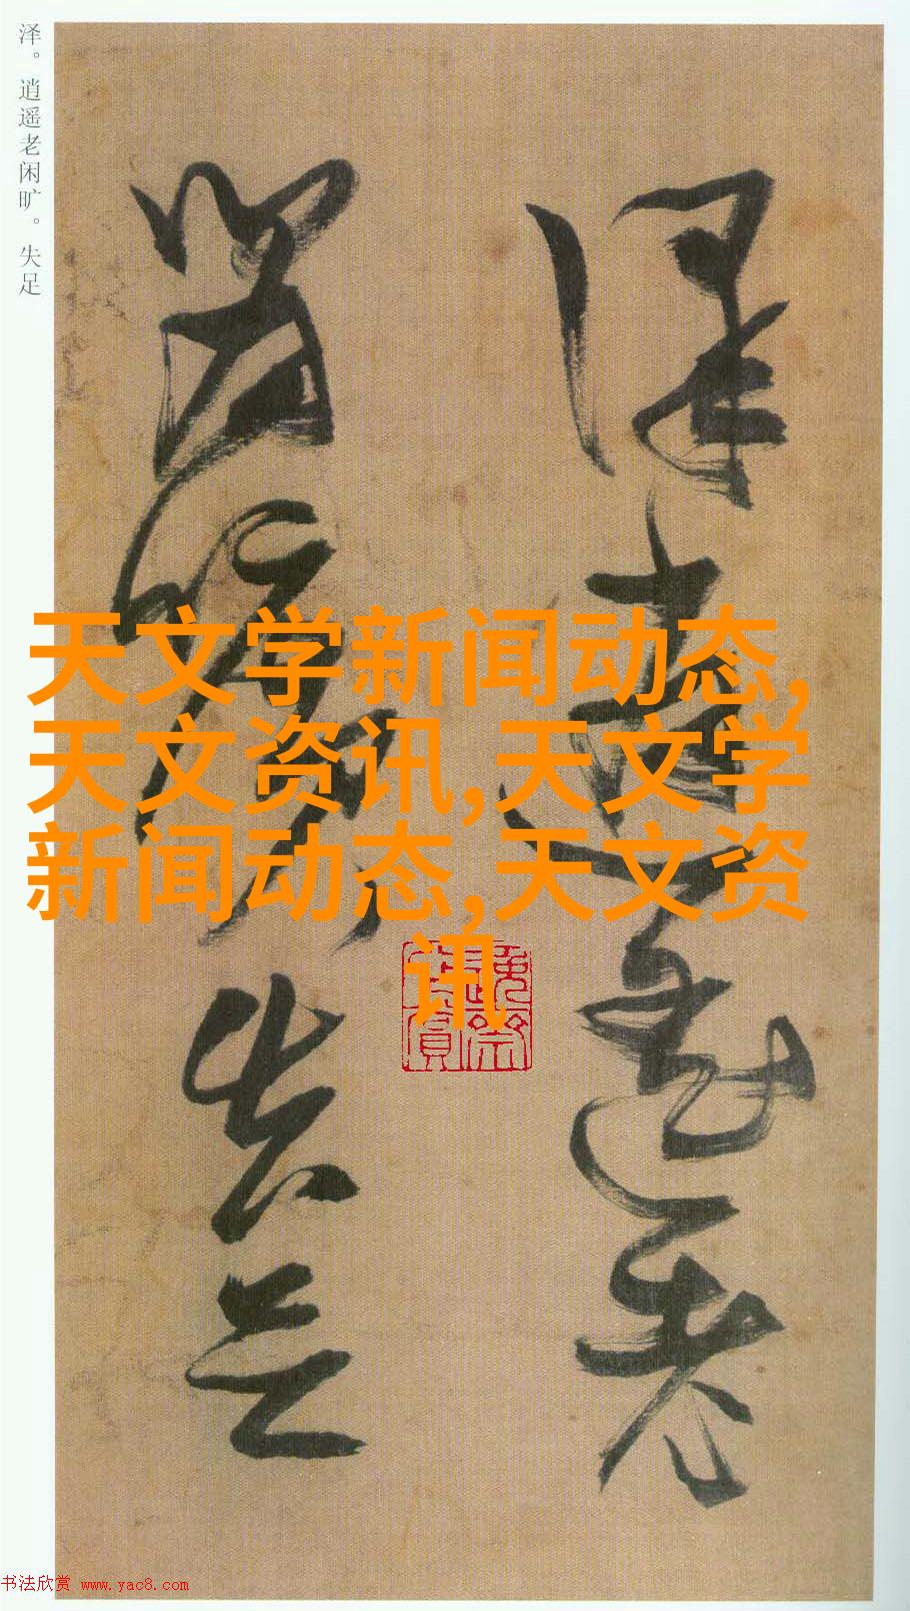 泽。逍遥老闲旷。失足
泽逍遥老
闲旷失足
天文学新闻动态,
天文资讯,天文学
新闻动态,天文资
讯
书法欣赏 www.yac8.com